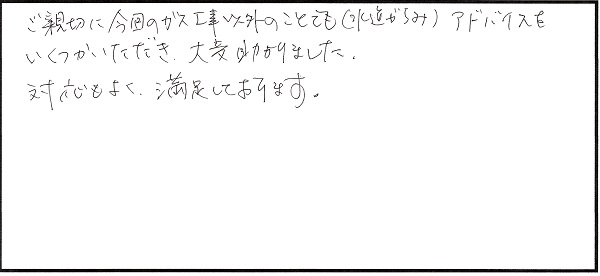 ご親切に今回のガス工事以外のことでも(水道がらみ)アドバイスを
いくつかいただき、大変助かりました。
対応もよく、満足しております。